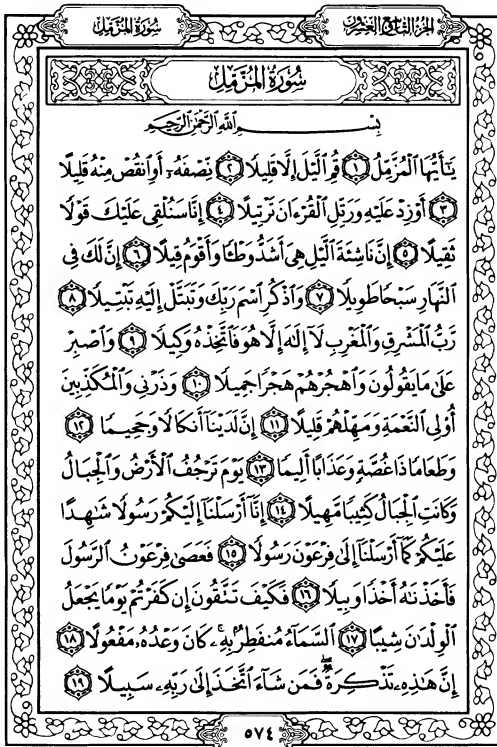 الجزء التاسع والعشرون
سورة المزمل
سُورَةُ المُزَّمِّلِ
بِسْمِ ٱللَّهِ ٱلرَّحْمَٰنِ ٱلرَّحِيمِ
يَٰٓأَيُّهَا ٱلْمُزَّمِّلُ ١ قُمِ ٱلَّيْلَ إِلَّا قَلِيلًا ٢ نِّصْفَهُۥٓ أَوِ ٱنقُصْ مِنْهُ قَلِيلًا
٣ أَوْ زِدْ عَلَيْهِ وَرَتِّلِ ٱلْقُرْءَانَ تَرْتِيلًا ٤ إِنَّا سَنُلْقِى عَلَيْكَ قَوْلًا
ثَقِيلًا ٥ إِنَّ نَاشِئَةَ ٱلَّيْلِ هِىَ أَشَدُّ وَطْـًٔا وَأَقْوَمُ قِيلًا ٦ إِنَّ لَكَ فِى
ٱلنَّهَارِ سَبْحًا طَوِيلًا ٧ وَٱذْكُرِ ٱسْمَ رَبِّكَ وَتَبَتَّلْ إِلَيْهِ تَبْتِيلًا ٨
رَّبُّ ٱلْمَشْرِقِ وَٱلْمَغْرِبِ لَآ إِلَٰهَ إِلَّا هُوَ فَٱتَّخِذْهُ وَكِيلًا ٩ وَٱصْبِرْ
عَلَىٰ مَا يَقُولُونَ وَٱهْجُرْهُمْ هَجْرًا جَمِيلًا ١٠ وَذَرْنِى وَٱلْمُكَذِّبِينَ
أُو۟لِى ٱلنَّعْمَةِ وَمَهِّلْهُمْ قَلِيلًا ١١ إِنَّ لَدَيْنَآ أَنكَالًا وَجَحِيمًا ١٢
وَطَعَامًا ذَا غُصَّةٍ وَعَذَابًا أَلِيمًا ١٣ يَوْمَ تَرْجُفُ ٱلْأَرْضُ وَٱلْجِبَالُ
وَكَانَتِ ٱلْجِبَالُ كَثِيبًا مَّهِيلًا ١٤ إِنَّآ أَرْسَلْنَآ إِلَيْكُمْ رَسُولًا شَٰهِدًا
عَلَيْكُمْ كَمَآ أَرْسَلْنَآ إِلَىٰ فِرْعَوْنَ رَسُولًا ١٥ فَعَصَىٰ فِرْعَوْنُ ٱلرَّسُولَ
فَأَخَذْنَٰهُ أَخْذًا وَبِيلًا ١٦ فَكَيْفَ تَتَّقُونَ إِن كَفَرْتُمْ يَوْمًا يَجْعَلُ
ٱلْوِلْدَٰنَ شِيبًا ١٧ ٱلسَّمَآءُ مُنفَطِرٌۢ بِهِۦ ۚ كَانَ وَعْدُهُۥ مَفْعُولًا ١٨
إِنَّ هَٰذِهِۦ تَذْكِرَةٌ ۖ فَمَن شَآءَ ٱتَّخَذَ إِلَىٰ رَبِّهِۦ سَبِيلًا ١٩
٥٧٤